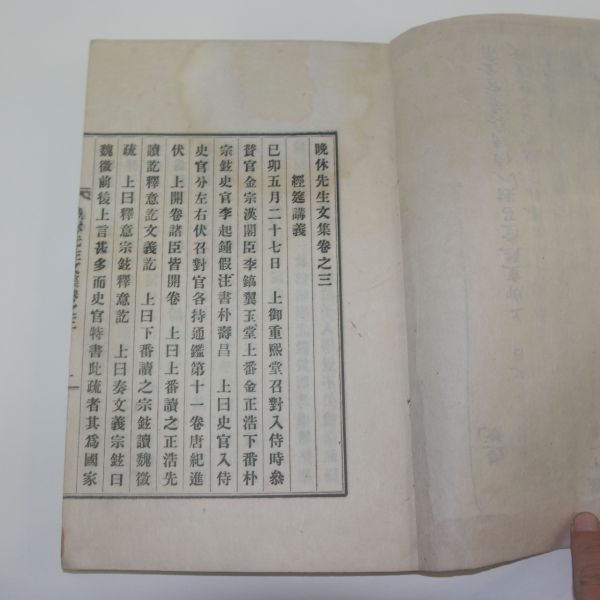 晩休先生文集卷之三
經筵講義
己卯五月二十七日 上御重熙堂召對入侍時叅
贊官金宗漢閣臣李鎬翼玉堂上番金正浩下番朴
宗鉉史官李起鍾假注書朴壽昌 上曰史官入侍
史官分左右伏召對官各持通鑑第十一卷唐紀進
伏 上開卷諸臣皆開卷 上曰上番讀之正浩先
讀訖釋意訖文義訖 上曰下番讀之宗鉉讀魏徵
疏 上曰釋意宗鉉釋意訖 上曰奏文義宗鉉曰
魏徵前後上言甚多而史官特書此疏者其爲國家